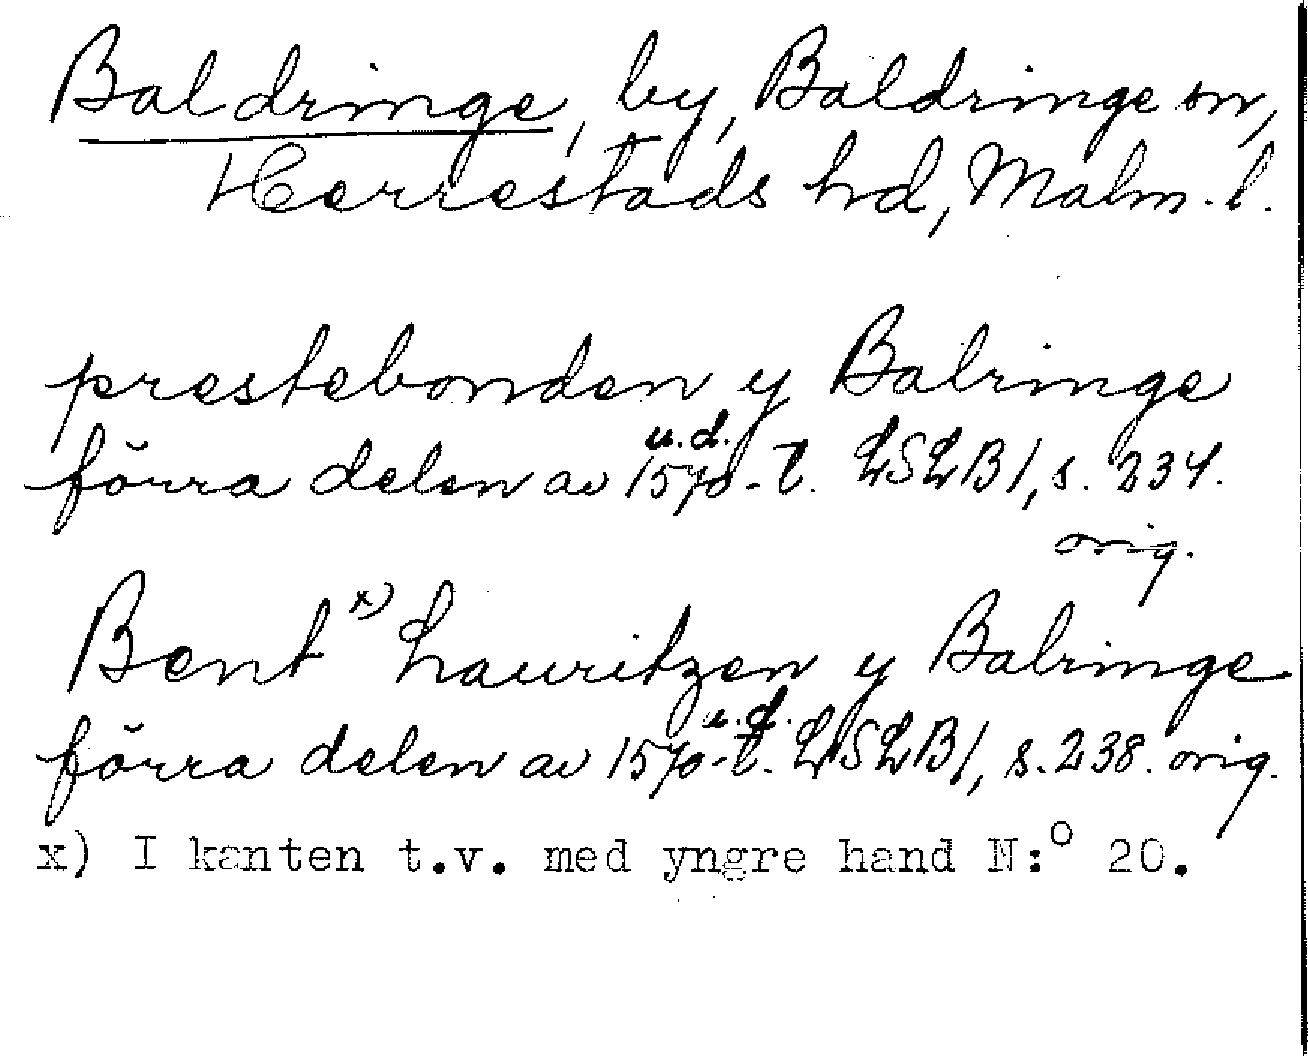 Baldringe, by, Baldringe sn,
Herrestads hd, Malm. l.
prestebonden y Balringe
u.d.
förra delen av 1570-t. LSLB1, s. 234.
orig.
Bent x) Lauritzen y Balringe
u.d.
förra delen av 1570-t. LSLB1, s. 238. orig.
x) I kanten t.v. med yngre hand N:o 20.